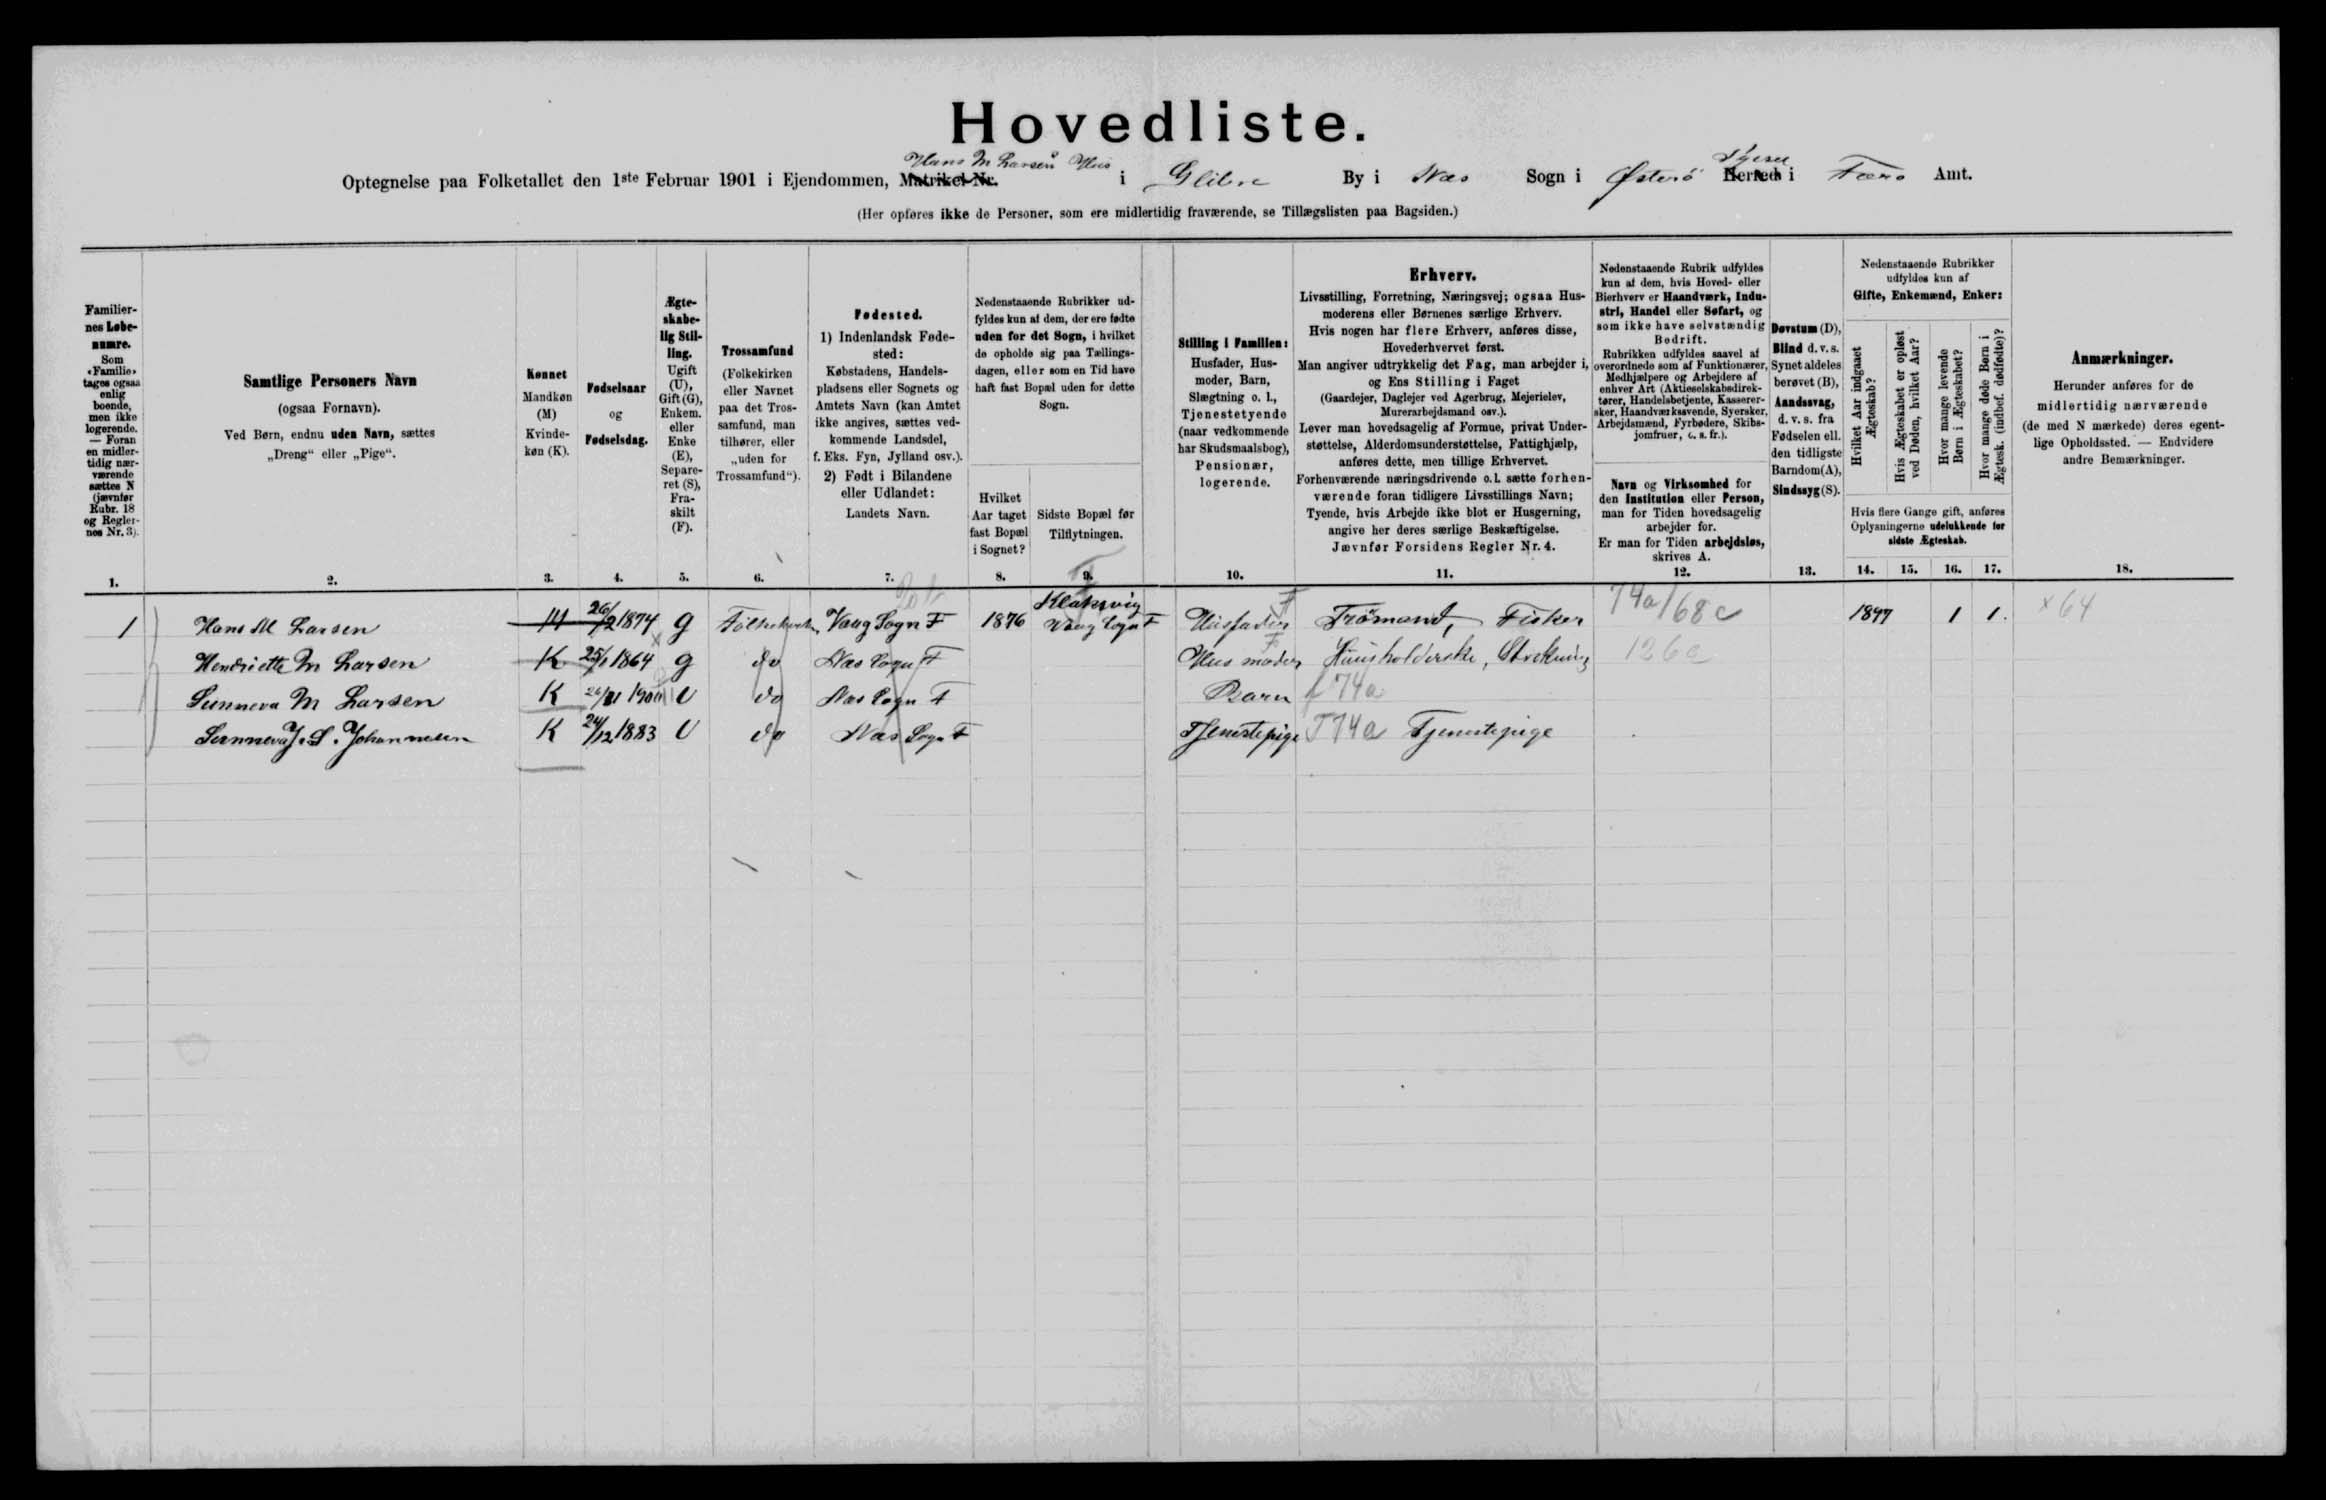 Hovedliste.
Hans M Larsens Hus
Syssel
Optegnelse paa Folketallet den 1ste Februar 1901 i Ejendommen, Matrikel-Nr. i Glibre By i Næs Sogn i Østerø Herred i Færø Amt.
(Her opføres ikke de Personer, som ere midlertidig fraværende, se Tillægslisten paa Bagsiden.)
Familier-
nes Løbe-
numre.
Som
«Familie»
tages ogsaa
enlig
boende,
men ikke
logerende.
— Foran
en midler-
tidig nær-
værende
sættes N
(jævnfør
Rubr. 18
og Regler-
nes Nr. 3).
1.
Samtlige Personers Navn
(ogsaa Fornavn).
Ved Børn, endnu uden Navn, sættes
„Dreng“ eller „Pige“.
2.
Kønnet
Mandkøn
(M)
Kvinde-
køn (K).
3.
Fødselsaar
og
Fødselsdag.
4.
Ægte-
skabe-
lig Stil-
ling.
Ugift
(U),
Gift (G),
Enkem.
eller
Enke
(E),
Separe-
ret (S),
Fra-
skilt
(F).
5.
Trossamfund
(Folkekirken
eller Navnet
paa det Tros-
samfund, man
tilhører, eller
„uden for
Trossamfund“).
6.
Fødested.
1) Indenlandsk Føde-
sted:
Købstadens, Handels-
pladsens eller Sognets og
Amtets Navn (kan Amtet
ikke angives, sættes ved-
kommende Landsdel,
f. Eks. Fyn, Jylland osv.).
2) Født i Bilandene
eller Udlandet:
Landets Navn.
7.
Nedenstaaende Rubrikker ud-
fyldes kun af dem, der ere fødte
uden for det Sogn, i hvilket
de opholde sig paa Tællings-
dagen, eller som en Tid have
haft fast Bopæl uden for dette
Sogn.
Hvilket
Aar taget
fast Bopæl
i Sognet?
8.
Sidste Bopæl før
Tilflytningen.
9.
Stilling i Familien:
Husfader, Hus-
moder, Barn,
Slægtning o. l.,
Tjenestetyende
(naar vedkommende
har Skudsmaalsbog),
Pensionær,
logerende.
10.
Erhverv.
Livsstilling, Forretning, Næringsvej; ogsaa Hus-
moderens eller Børnenes særlige Erhverv.
Hvis nogen har flere Erhverv, anføres disse,
Hovederhvervet først.
Man angiver udtrykkelig det Fag, man arbejder i,
og Ens Stilling i Faget
(Gaardejer, Daglejer ved Agerbrug, Mejerielev,
Murerarbejdsmand osv.).
Lever man hovedsagelig af Formue, privat Under-
støttelse, Alderdomsunderstøttelse, Fattighjælp,
anføres dette, men tillige Erhvervet.
Forhenværende næringsdrivende o. l. sætte forhen-
værende foran tidligere Livsstillings Navn;
Tyende, hvis Arbejde ikke blot er Husgerning,
angive her deres særlige Beskæftigelse.
Jævnfør Forsidens Regler Nr. 4.
11.
Nedenstaaende Rubrik udfyldes
kun af dem, hvis Hoved- eller
Bierhverv er Haandværk, Indu-
stri, Handel eller Søfart, og
som ikke have selvstændig
Bedrift.
Rubrikken udfyldes saavel af
overordnede som af Funktionærer,
Medhjælpere og Arbejdere af
enhver Art (Aktieselskabsdirek-
tører, Handelsbetjente, Kasserer-
sker, Haandværkssvende, Syersker,
Arbejdsmænd, Fyrbødere, Skibs-
jomfruer, o. s. fr.).
Navn og Virksomhed for
den Institution eller Person,
man for Tiden hovedsagelig
arbejder for.
Er man for Tiden arbejdsløs,
skrives A.
12.
Døvstum (D),
Blind d. v. s.
Synet aldeles
berøvet (B),
Aandssvag,
d. v. s. fra
Fødselen ell.
den tidligste
Barndom (A),
Sindssyg (S).
13.
Nedenstaaende Rubrikker
udfyldes kun af
Gifte, Enkemænd, Enker:
Hvilket Aar indgaaet
Ægteskab?
Hvis Ægteskabet er opløst
ved Døden, hvilket Aar?
Hvor mange levende
Børn i Ægteskabet?
Hvor mange døde Børn i
Ægtesk. (indbef. dødfødte)?
Hvis flere Gange gift, anføres
Oplysningerne udelukkende for
sidste Ægteskab.
14. 15. 16. 17.
Anmærkninger.
Herunder anføres for de
midlertidig nærværende
(de med N mærkede) deres egent-
lige Opholdssted. — Endvidere
andre Bemærkninger.
18.
1 Hans M Larsen M 26/2 1874 g Folkekirken Vaag Sogn F 1876 Klaksvig Vaag Sogn F Husfader Trømand, Fisker 74a/68c 1897 1 1. x 64
Hendriette M Larsen K 25/1 1864 g do Næs Sogn F Husmoder Huusholderske, Strikning 126a
Sunneva M Larsen K 1900 U do Næs Sogn F Barn f 74a
Sunneva J. S. Johannesen K 24/12 1883 U do Næs Sogn F Tjenestepige T74a Tjenestepige